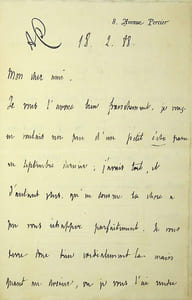 8. Avenue Percier
18. 2. 98.
Mon cher ami.
Je vous l'avoue bien franchement. je vous
en voulais non pas d'un petit écho paru
en septembre dernier; j'avais tort, et
d'autant plus, qu'en somme la chose a
pu vous échapper parfaitement. Je vous
serre donc bien cordialement la main
quant au